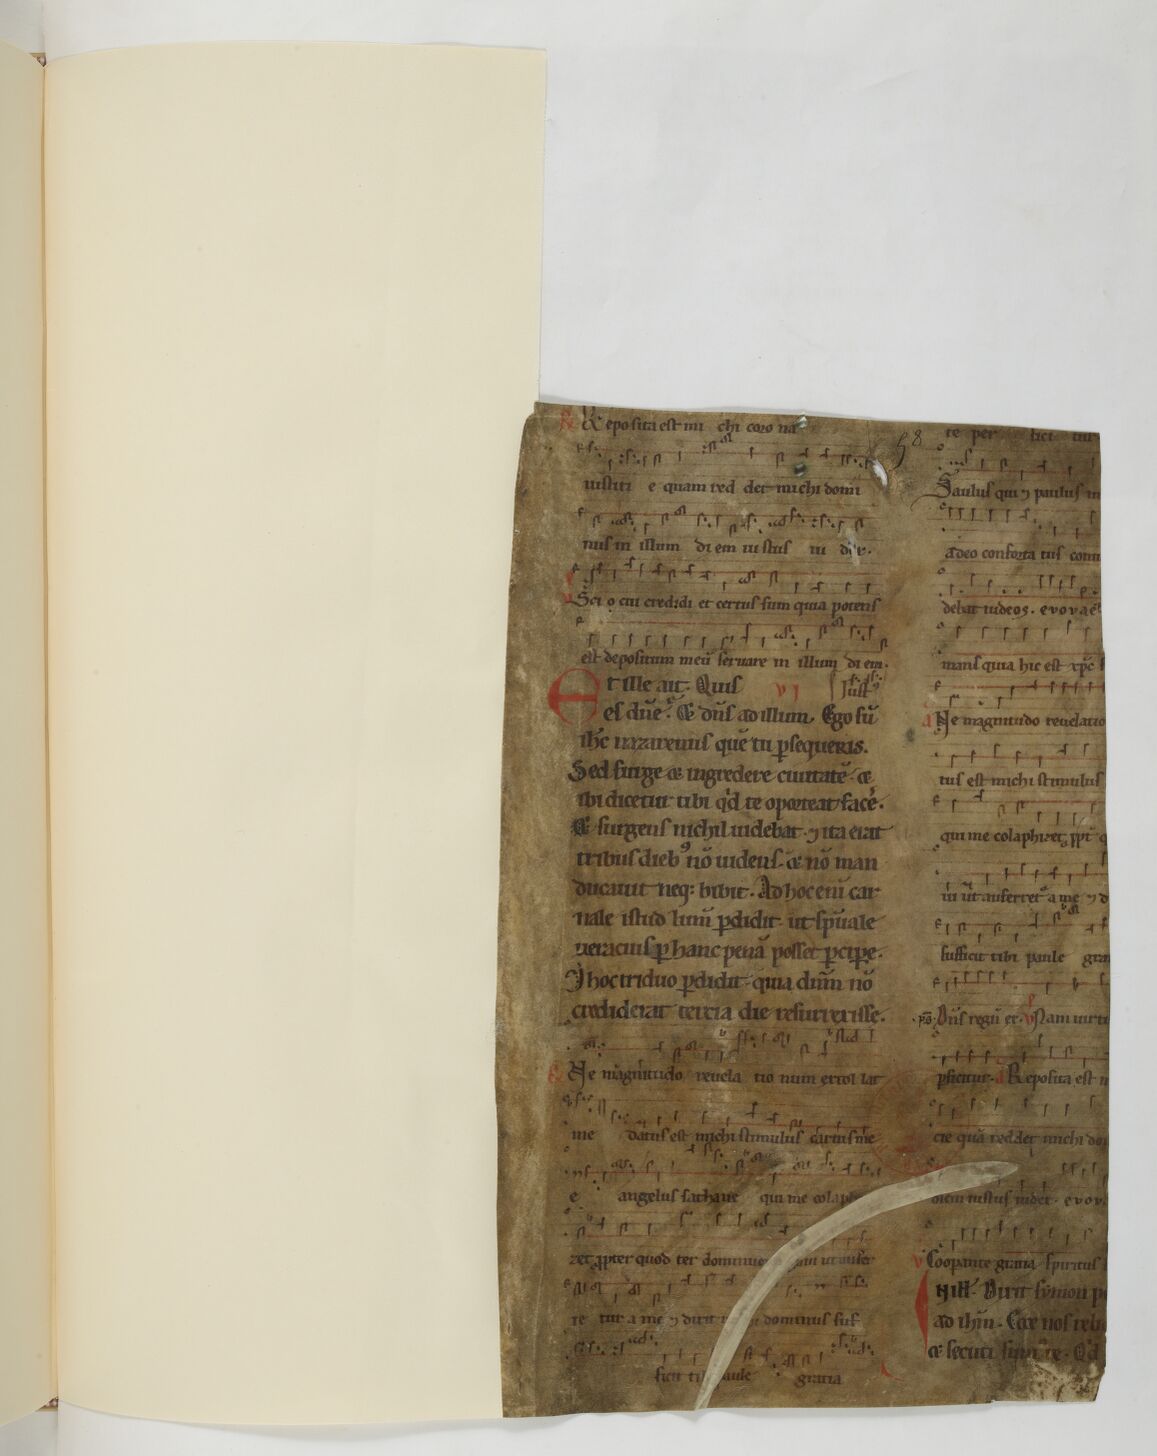 R Reposita est mi chi coro na
iustiti e quam red det michi domi
nus in illum di em iustus iu dex.
Scio cui credidi et certus sum quia potens
est depositum meū seruare in illum diem.
Et ille ait. Quis vi
es dn̄e. & dn̄s ad illum. Ego sū
ih̄c nazarenus quē tu ꝑsequeris.
Sed surge & ingredere ciuitatē &
ibi dicetur tibi qd te oporteat facē.
& surgens nichil uidebat. ⁊ ita erat
tribus dieb⁹ nō uidens. & nō man
ducauit neq; bibit. Ad hoc enī car
nale istud lum̄ ꝑdidit. ut sp̄uale
ueracius ꝑ hanc penā posset ꝑcipe.
hoc triduo ꝑdidit. quia dn̄m nō
crediderat tercia die resurrexisse.
R Ne magnitudo reuela tio num extol lat
me datus est michi stimulus carnis me
e angelus sathane qui me colaph
zet ꝓpter quod ter dominum ut aufer
re tur a me ⁊ dixit michi dominus suf
ficit tibi paule gracia
58
te per
Saulus qui ⁊ paulus
adeo conforta tus
debat iudeos. evovae
mans quia hic est xp̄c
a Ne magnitudo reuelatio
tus est michi stimulus
qui me colaphizet
ut auferret a me ⁊
sufficit tibi paule gra
Nam uirtu
ꝑficitur. a Reposita est
cie quā reddet michi do
diem iustus iudex. evov
v Coopante gracia spiritus
Dixit symon
ad ih̄m. Ecce nos reli
& secuti sumus te. Qd